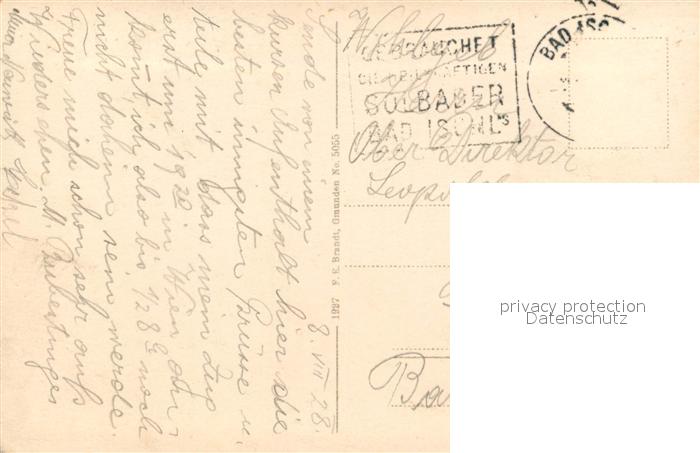 8. VIII 28.
Sende von einem
kurzen Aufenthalt hier die
besten innigsten Grüsse u.
teile mit dass mein Zug
erst um 19 20 in Wien
kommt, ich also bis 1/2 8 h noch
nicht daheim sein werde.
Freue mich schon sehr aufs
Wiedersehen M.
1927 F. E. Brandt, Gmunden No. 5055
GEBRAUCHET
DIE HEILKRÄFTIGEN
SOLBÄDER
BAD ISCHL'S
BAD ISC
Wohlgeb
Herrn
Ober Direktor
Leopold
Ba
privacy protection
Datenschutz